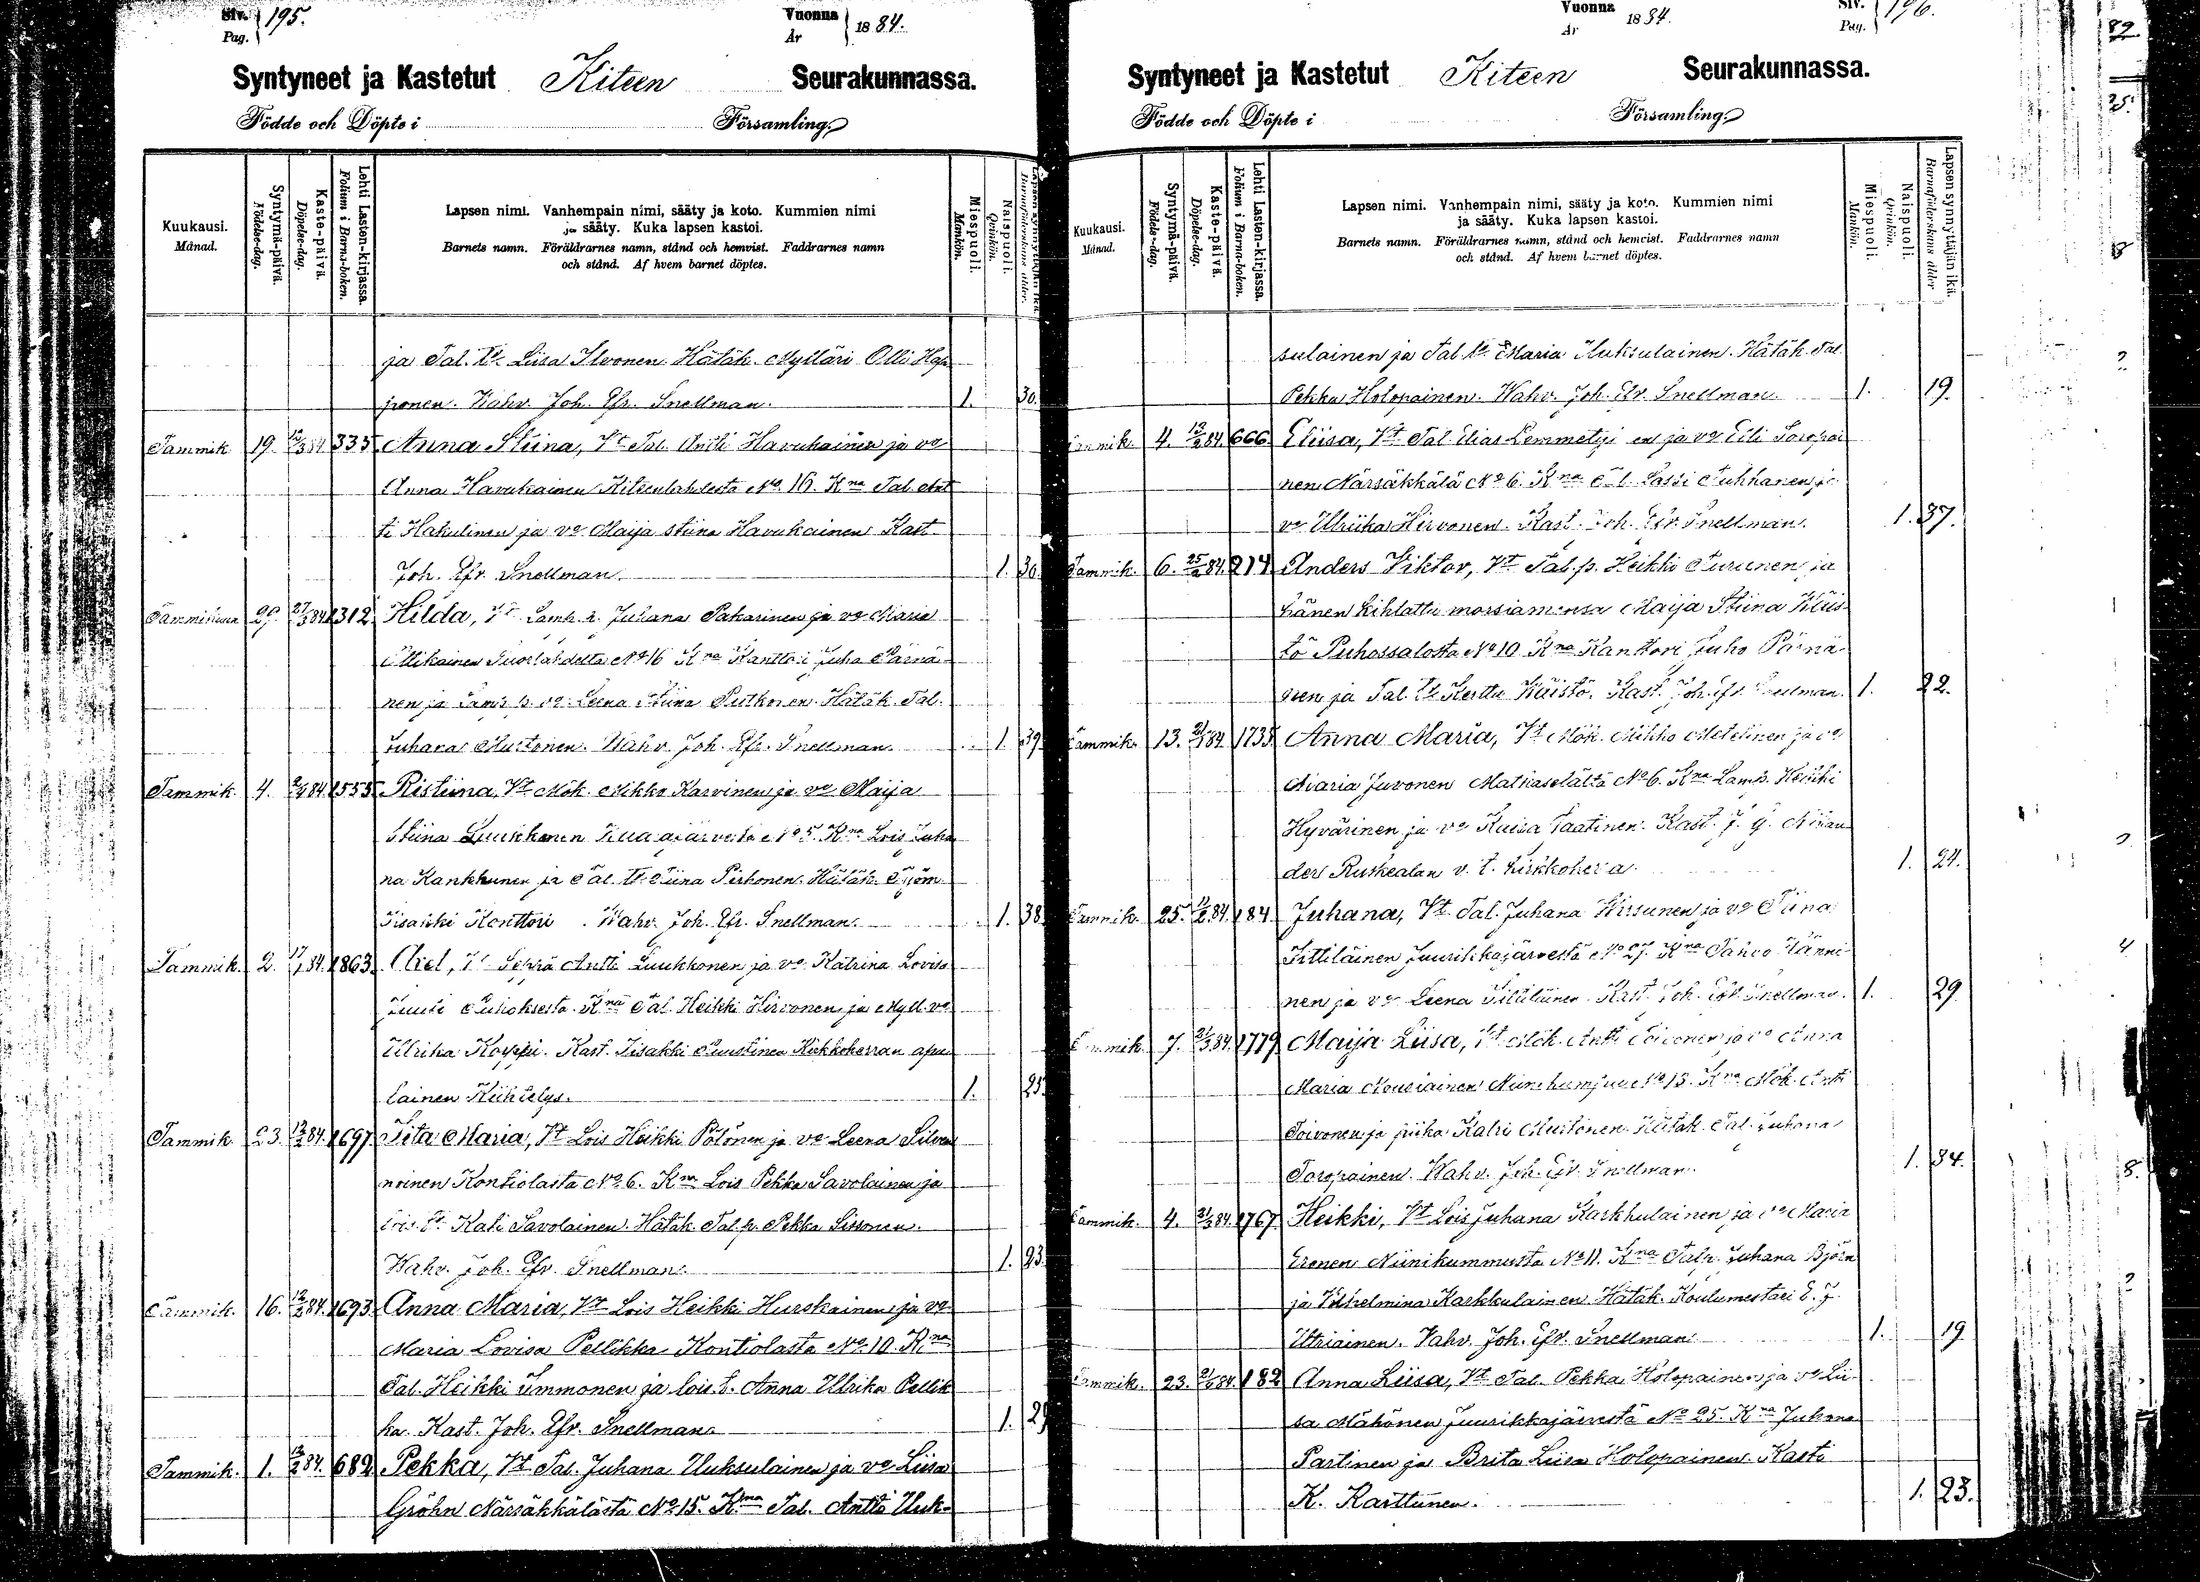 Siv. Pag. 195.
Vuonna År 1884.
Syntyneet ja Kastetut Kiteen Seurakunnassa.
Födde och Döpte i Församling.
Kuukausi. Månad.
Syntymä-päivä. Födelse-dag.
Kaste-päivä. Döpelse-dag.
Lehti Lasten-kirjassa. Folium i Barna-boken.
Lapsen nimi. Vanhempain nimi, sääty ja koto. Kummien nimi
ja sääty. Kuka lapsen kastoi.
Barnets namn. Föräldrarnes namn, stånd och hemvist. Faddrarnes namn
och stånd. Af hvem barnet döptes.
Miespuoli. Mankön.
Naispuoli. Qvinkön.
ja Tal. tr. Liisa Ilvonen Hätäk. Mylläri Olli Hap
ponen. Wahv. Joh. Efr. Snellman. 1. 30.
Tammik. 19. 335 Anna Stiina, Vt Tal. Antti Havukainen ja vo
Anna Havukainen Kiteenlahdesta No. 16. Kna Tal. Ant
ti Hakulinen ja vo Maija Stiina Havukainen Kast.
Joh. Efr. Snellman. 1. 30.
29. 1312 Hilda, Vt Lamp. Juhana Pakarinen ja vo Maria
No 16 Kna Kanttori Juho Pärnä
nen ja Lamp. vo Leena Stiina Putkonen Hätäk. Tal.
Juhana Mustonen. Wahv. Joh. Efr. Snellman. 1. 39.
Tammik. 4. 1555 Ristiina, Vt Mök. Mikko Karvinen ja vo Maija
Stiina Luukkonen No 5. Kna Lois Juha
na Kankkunen ja Tal. tr. Tiina Pirhonen. Hätäk.
Iisakki Konttori. Wahv. Joh. Efr. Snellman. 1. 38.
Tammik. 2. 1863 Antti Luukkonen ja vo Katrina Lovisa
Kna Tal. Heikki Hirvonen ja Myll. vo
Ulrika Koppi. Kast. Iisakki Kirkkoherran apu
lainen Kiihtelys. 1. 25.
Tammik. 23. 1697 Iita Maria, Vt Lois Heikki Pölönen ja vo Leena Silven
noinen Kontiolasta No. 6. Kna Lois Pekka Savolainen ja
Kati Savolainen. Hätäk. Tal. p. Pekka Sissonen.
Wahv. Joh. Efr. Snellman. 1. 23.
Tammik. 16. 1693 Anna Maria, Vt Lois Heikki Hurskainen ja vo
Maria Lovisa Pellikka Kontiolasta No. 10. Kna
Tal. Heikki Immonen ja lois. t. Anna Ulrika Pellik
ka. Kast. Joh. Efr. Snellman. 1.
Tammik. 1. 682 Pekka, Vt Tal. Juhana Uuksulainen ja vo Liisa
Gröhn Närsäkkälästä No. 15. Kna Tal. Antti Uuk-
Vuonna År 1884.
Siv. Pag. 196.
Syntyneet ja Kastetut Kiteen Seurakunnassa.
Födde och Döpte i Församling.
Kuukausi. Månad.
Syntymä-päivä. Födelse-dag.
Kaste-päivä. Döpelse-dag.
Lehti Lasten-kirjassa. Folium i Barna-boken.
Lapsen nimi. Vanhempain nimi, sääty ja koto. Kummien nimi
ja sääty. Kuka lapsen kastoi.
Barnets namn. Föräldrarnes namn, stånd och hemvist. Faddrarnes namn
och stånd. Af hvem barnet döptes.
Miespuoli. Mankön.
Naispuoli. Qvinkön.
Lapsen synnyttäjän ikä. Barnaföderskans ålder
sulainen ja Tal. tr. Maria Uuksulainen. Hätäk. Tal.
Pekka Holopainen. Wahv. Joh. Efr. Snellman. 1. 19.
Tammik. 4. 666 Eliisa, Vt Tal. Elias Lemmetyinen ja vo Eeli Soropai
nen Närsäkkälä No 6. Kna Tal. Lassi Tuhkanen ja
vo Ulriika Hirvonen. Kast. Joh. Efr. Snellman. 1. 37.
Tammik. 6. 214 Anders Viktor, Vt Tal. p. Heikki Turunen ja
hänen kihlattu morsiamensa Maija Stiina Kiis
tö Puhossalosta No 10 Kna Kanttori Juho Pärnä
nen ja Tal. tr. Kerttu Kiistö. Kast. Joh. Efr. Snellman. 1. 22.
Tammik. 13. 1735 Anna Maria, Vt Mök. Mikko ja vo
Maria Juvonen Matkaselältä No 6. Kna Lamp. Heikki
Hyvärinen ja vo Kaisa Taatinen. Kast. J. G.
der Ruskealan v. t. kirkkoherra. 1. 24.
Tammik. 25. 184 Juhana, Vt Tal. Juhana Hirsunen ja vo Tiina
Juurikkajärvestä No 27. Kna Tahvo Känni
nen ja vo Leena Kast. Joh. Efr. Snellman. 1. 29
Tammik. 7. 1779 Maija Liisa, Vt Mök. Antti Toivonen ja vo Anna
Maria Kousiainen No 13. Kna Mök. Antti
Toivonen ja piika Katri Mustonen. Hätäk. Tal. Juhana
Soropainen. Wahv. Joh. Efr. Snellman. 1. 34.
Tammik. 4. 1767 Heikki, Vt Lois Juhana Karkkulainen ja vo Maria
Eronen Niinikummusta No 11. Kna Tal. p. Juhana Björn
ja Vilhelmina Karkkulainen. Hätäk. Koulumestari E. J.
Utriainen. Vahv. Joh. Efr. Snellman. 1. 19
Tammik. 23. 182 Anna Liisa, Vt Tal. Pekka Holopainen ja vo Lii
sa Mähönen Juurikkajärvestä No 25. Kna Juhana
Partinen ja Brita Liisa Holopainen. Kasti
K. Karttunen. 1. 23.